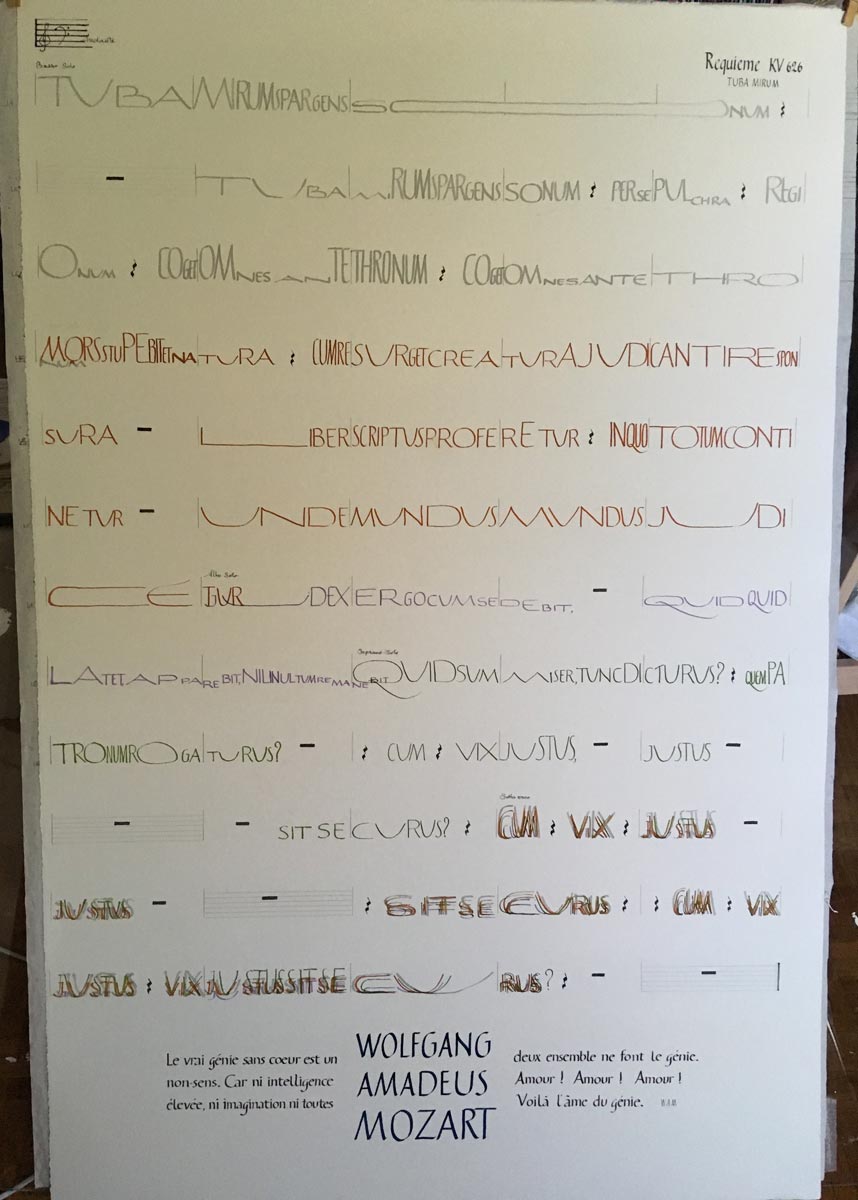 Andante
Requieme KV 626
TUBA MIRUM
TUBA MIRUM SPARGENS SONUM
TUBA MIRUM SPARGENS SONUM PER SEPULCHRA REGI
ONUM COGET OMNES ANTE THRONUM COGET OMNES ANTE THRO
NUM MORS STUPEBIT ET NATURA CUM RESURGET CREATURA JUDICANTI RESPON
SURA LIBER SCRIPTUS PROFERETUR IN QUO TOTUM CONTI
NETUR UNDE MUNDUS MUNDUS JUDI
Alto Solo
CÉTUR JUDEX ERGO CUM SEDEBIT, QUIDQUID
Soprano Solo
LATET APPAREBIT, NIL INULTUM REMANEBIT QUID SUM MISER, TUNC DICTURUS? QUEM PA
TRONUM ROGATURUS? CUM VIX JUSTUS, JUSTUS
SIT SECURUS? CUM VIX JUSTUS
JUSTUS SIT SECURUS CUM VIX
JUSTUS VIX JUSTUS SIT SECURUS?
Le vrai génie sans coeur est un
non-sens. Car ni intelligence
élevée, ni imagination ni toutes
WOLFGANG
AMADEUS
MOZART
deux ensemble ne font le génie.
Amour ! Amour ! Amour !
Voilà l'âme du génie.